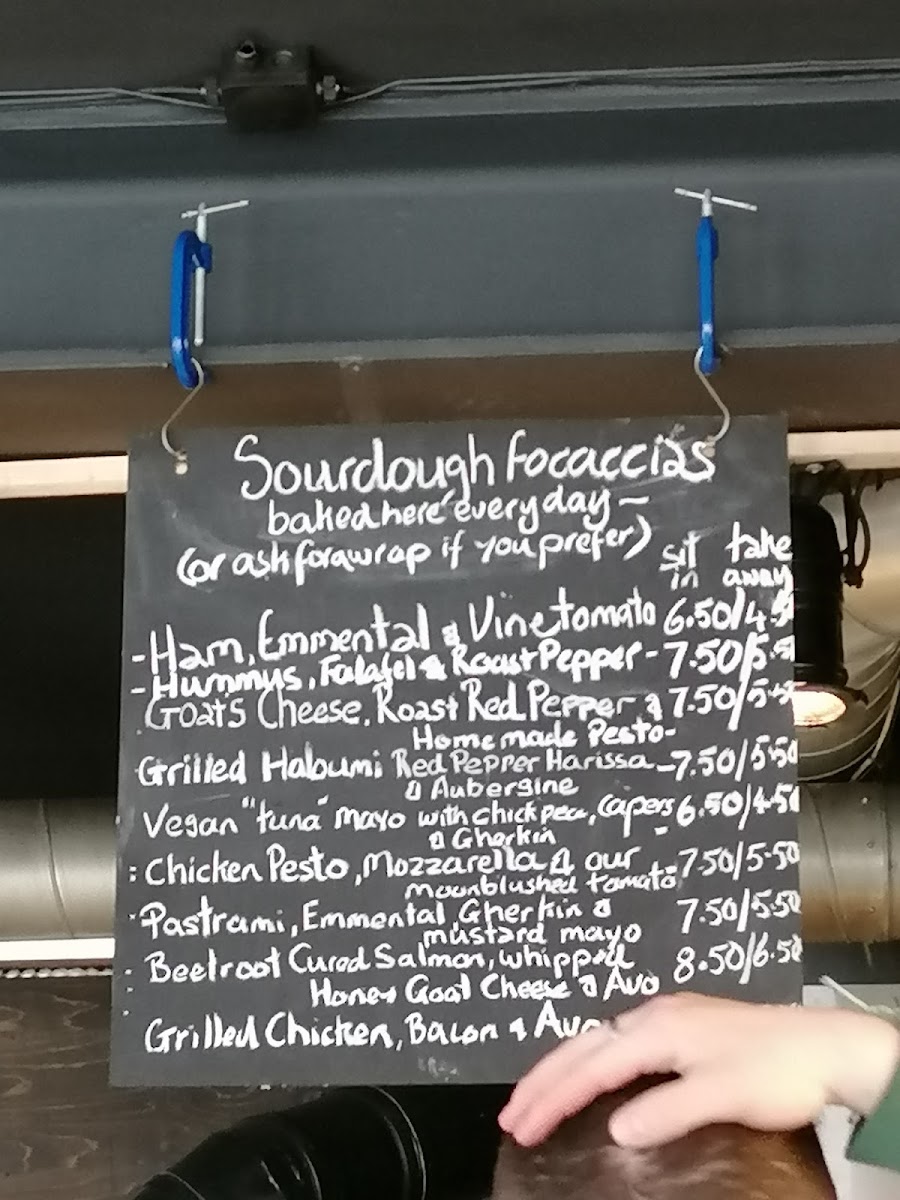 Sourdough Focaccias
baked here every day –
(or ask for a wrap if you prefer)
sit in take away
- Ham, Emmental & Vine tomato 6.50/4.5
- Hummus, Falafel & Roast Pepper - 7.50/5.5
Goats Cheese, Roast Red Pepper & 7.50/5.5
Home made Pesto-
Grilled Haloumi Red Pepper Harissa - 7.50/5.50
& Aubergine
Vegan "tuna" mayo with chick pea, capers 6.50/4.50
& Gherkin
: Chicken Pesto, Mozzarella & our - 7.50/5.50
moonblushed tomato
Pastrami, Emmental, Gherkin & 7.50/5.50
mustard mayo
Beetroot Cured Salmon, whipped 8.50/6.50
Honey Goat Cheese & Avo
Grilled Chicken, Bacon & Avo